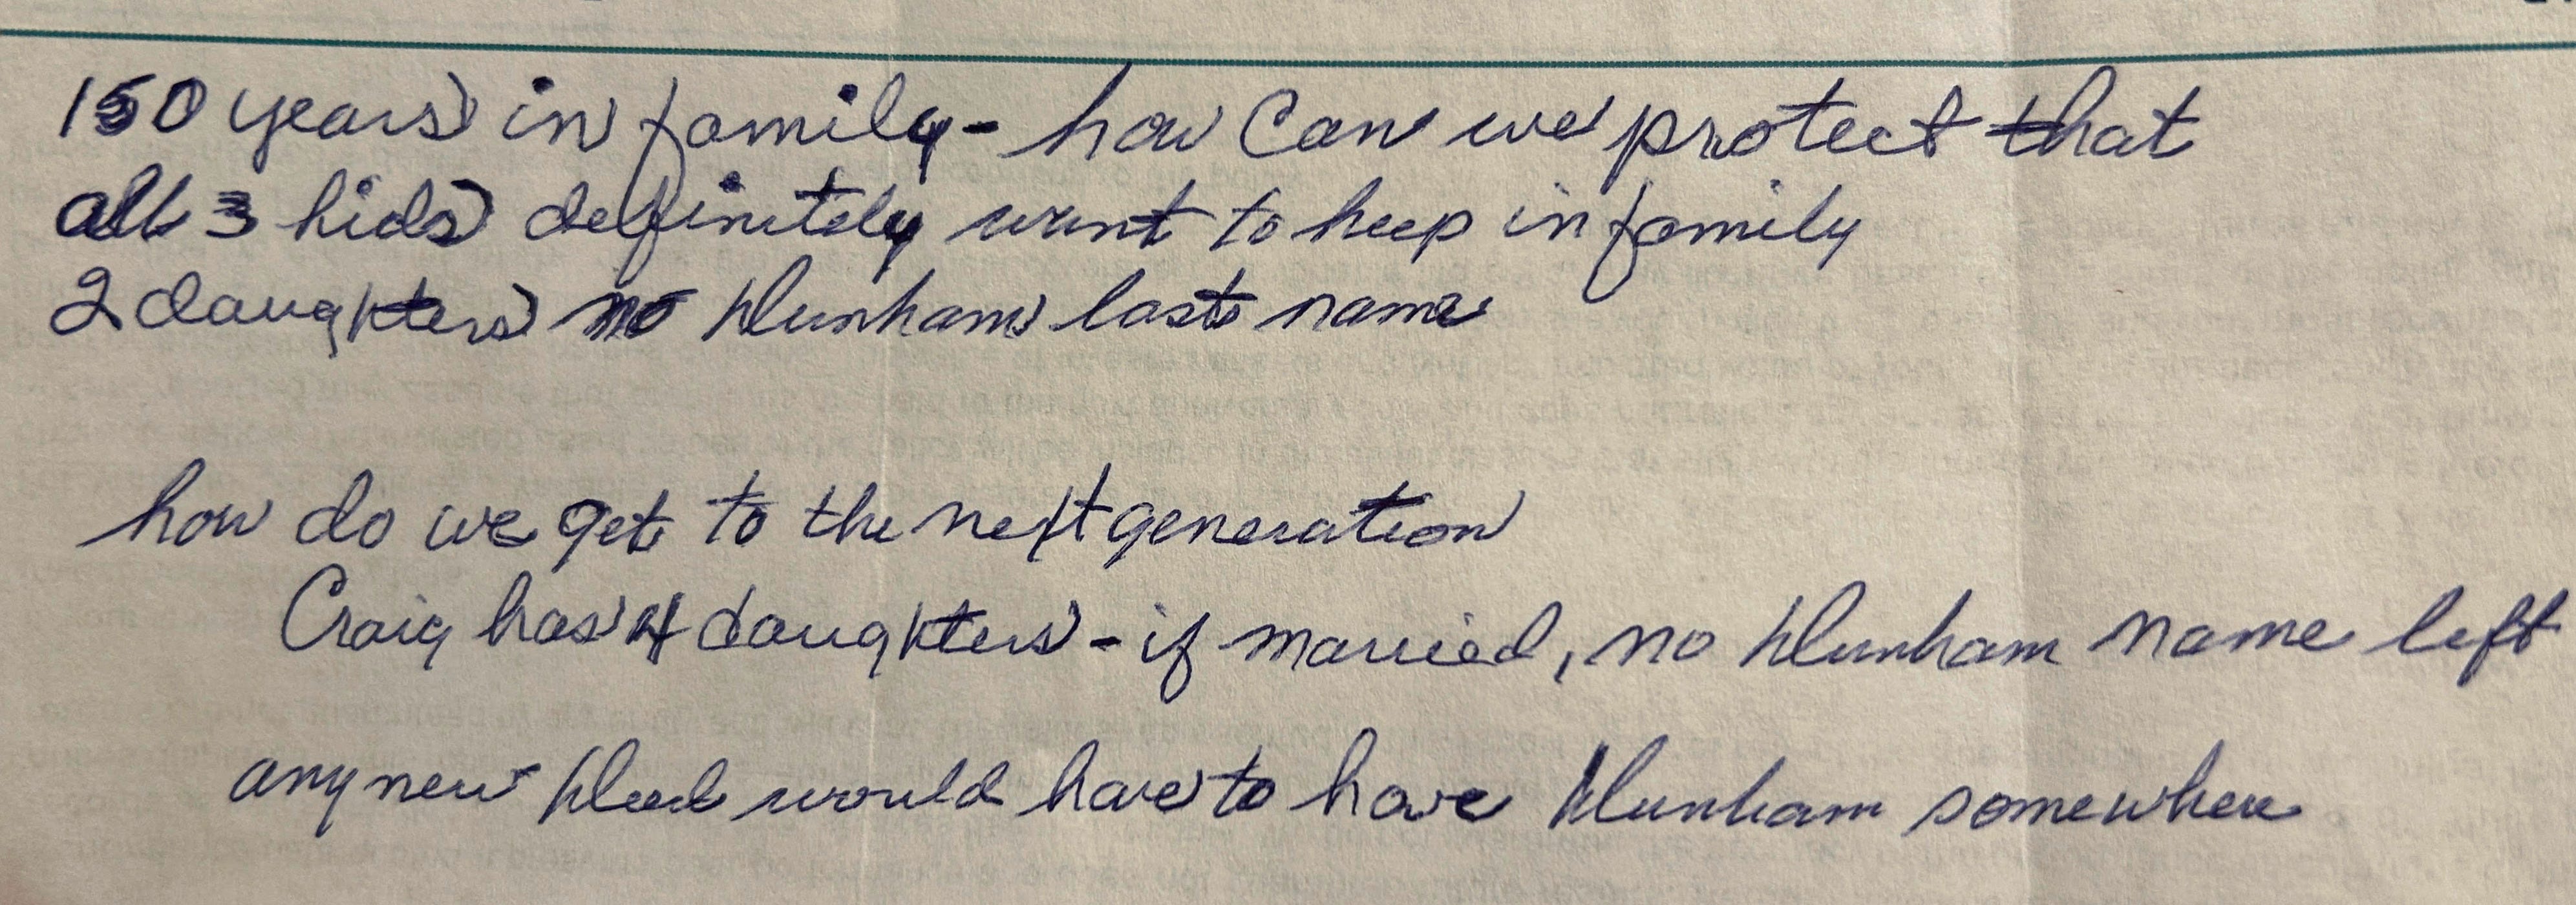 150 years in family - how can we protect that
all 3 kids definitely want to keep in family
2 daughters no Dunham last name
how do we get to the next generation
Craig has 4 daughters - if married, no Dunham name left
any new Deed would have to have Dunham somewhere